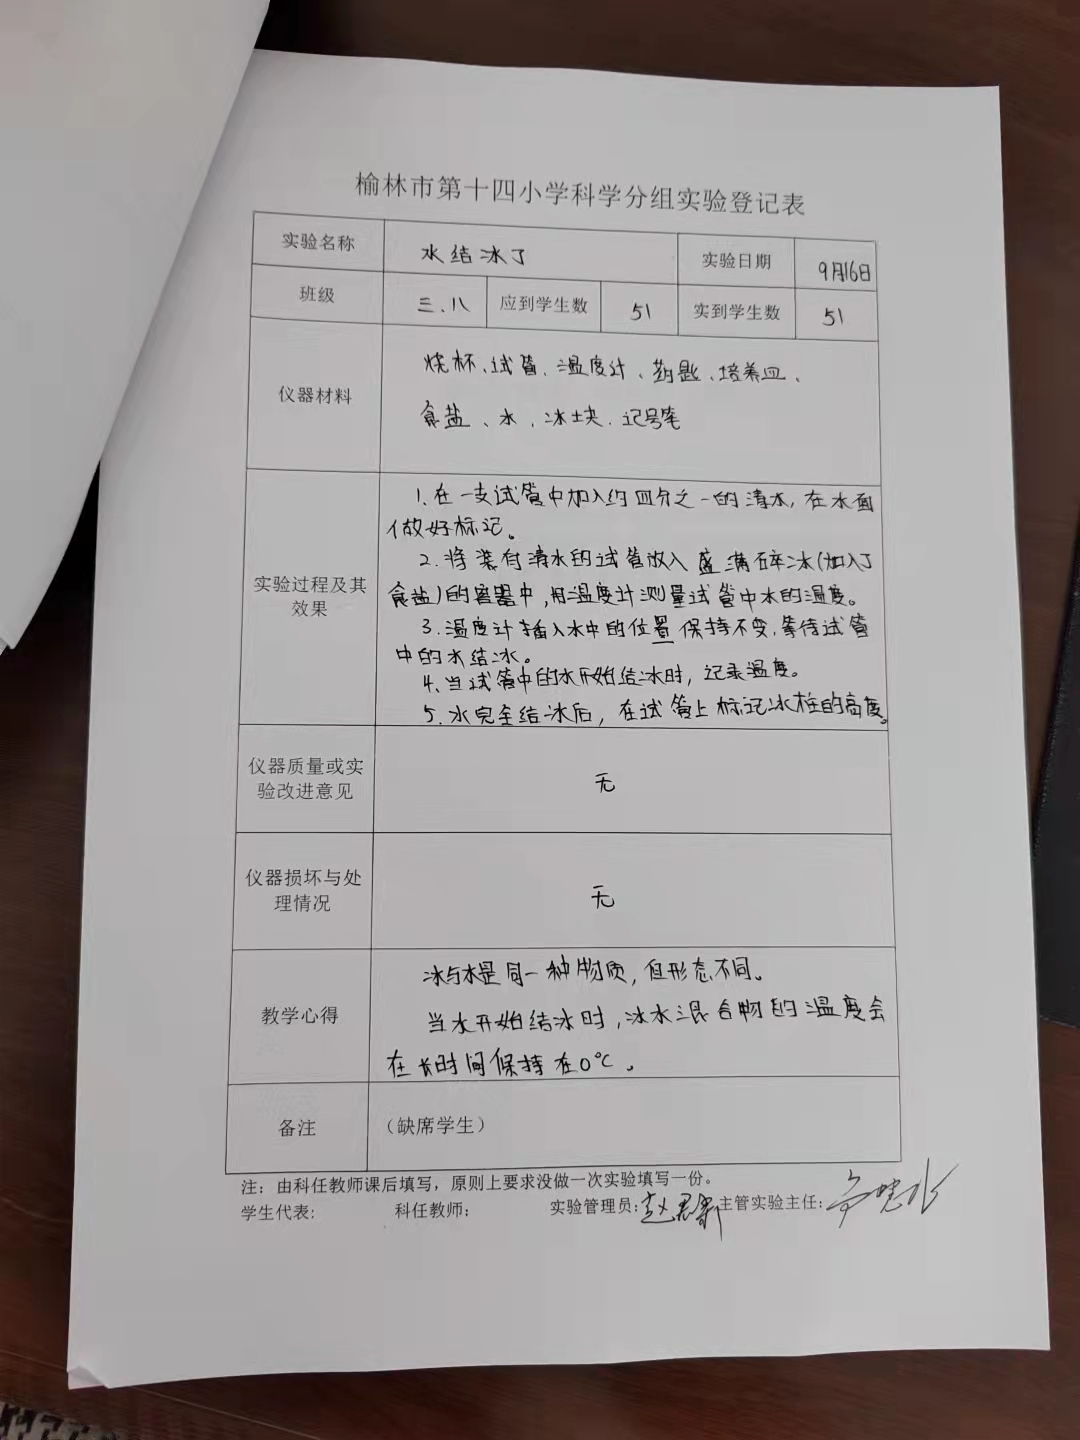 榆林市第十四小学科学分组实验登记表
实验名称 水结冰了 实验日期 9月16日
班级 三.八 应到学生数 51 实到学生数 51
仪器材料
烧杯、试管、温度计、药匙、培养皿、
食盐、水、冰块、记号笔
实验过程及其
效果
1.在一支试管中加入约四分之一的清水,在水面
做好标记。
2.将装有清水的试管放入盛满碎冰(加入了
食盐)的容器中,用温度计测量试管中水的温度。
3.温度计插入水中的位置保持不变,等待试管
中的水结冰。
4.当试管中的水开始结冰时,记录温度。
5.水完全结冰后,在试管上标记冰柱的高度。
仪器质量或实
验改进意见
无
仪器损坏与处
理情况
无
教学心得
冰与水是同一种物质,但形态不同。
当水开始结冰时,冰水混合物的温度会
在长时间保持在0℃。
备注 （缺席学生）
注：由科任教师课后填写，原则上要求没做一次实验填写一份。
学生代表: 科任教师: 实验管理员: 主管实验主任: